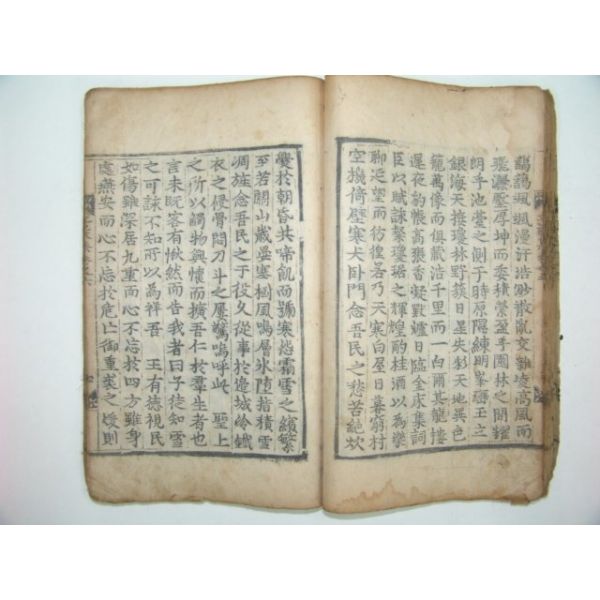 飄颻颯颯漫汗浩渺散亂交雜凌高風而
飛灑壓厚坤而委積瑩盈乎園林之間耀
朗乎池臺之側于時原隰練明峯巒玉立
銀海天接瓊林野簇日星失彩天地異色
籠萬像而俱藏浩千里而一白爾其龍樓
邃夜豹帳高褰香凝獸爐日臨金屋集詞
臣以賦詠繫瓊琚之輝煌酌桂酒以爲樂
聊遊望而彷徨若乃天寒白屋日暮窮村
空機倚壁寒犬臥門念吾民之愁苦絶炊
爨於朝昏共啼飢而號寒怨霜雪之繽繁
至若關山歲晏塞樹風鳴層氷陸指積雪
凋旌念吾民之于役久從事於邊城冷鐵
衣之侵骨問刀斗之屢驚嗚呼此 聖上
之所以觸物興懷而擴吾仁於羣生者也
言未旣客有愀然而告我者曰子徒知雪
之可詠不知所以爲祥吾 王有德視民
如傷雖深居九重而心不忘於四方雖身
處燕安而心不忘於危亡御重裘之煖則